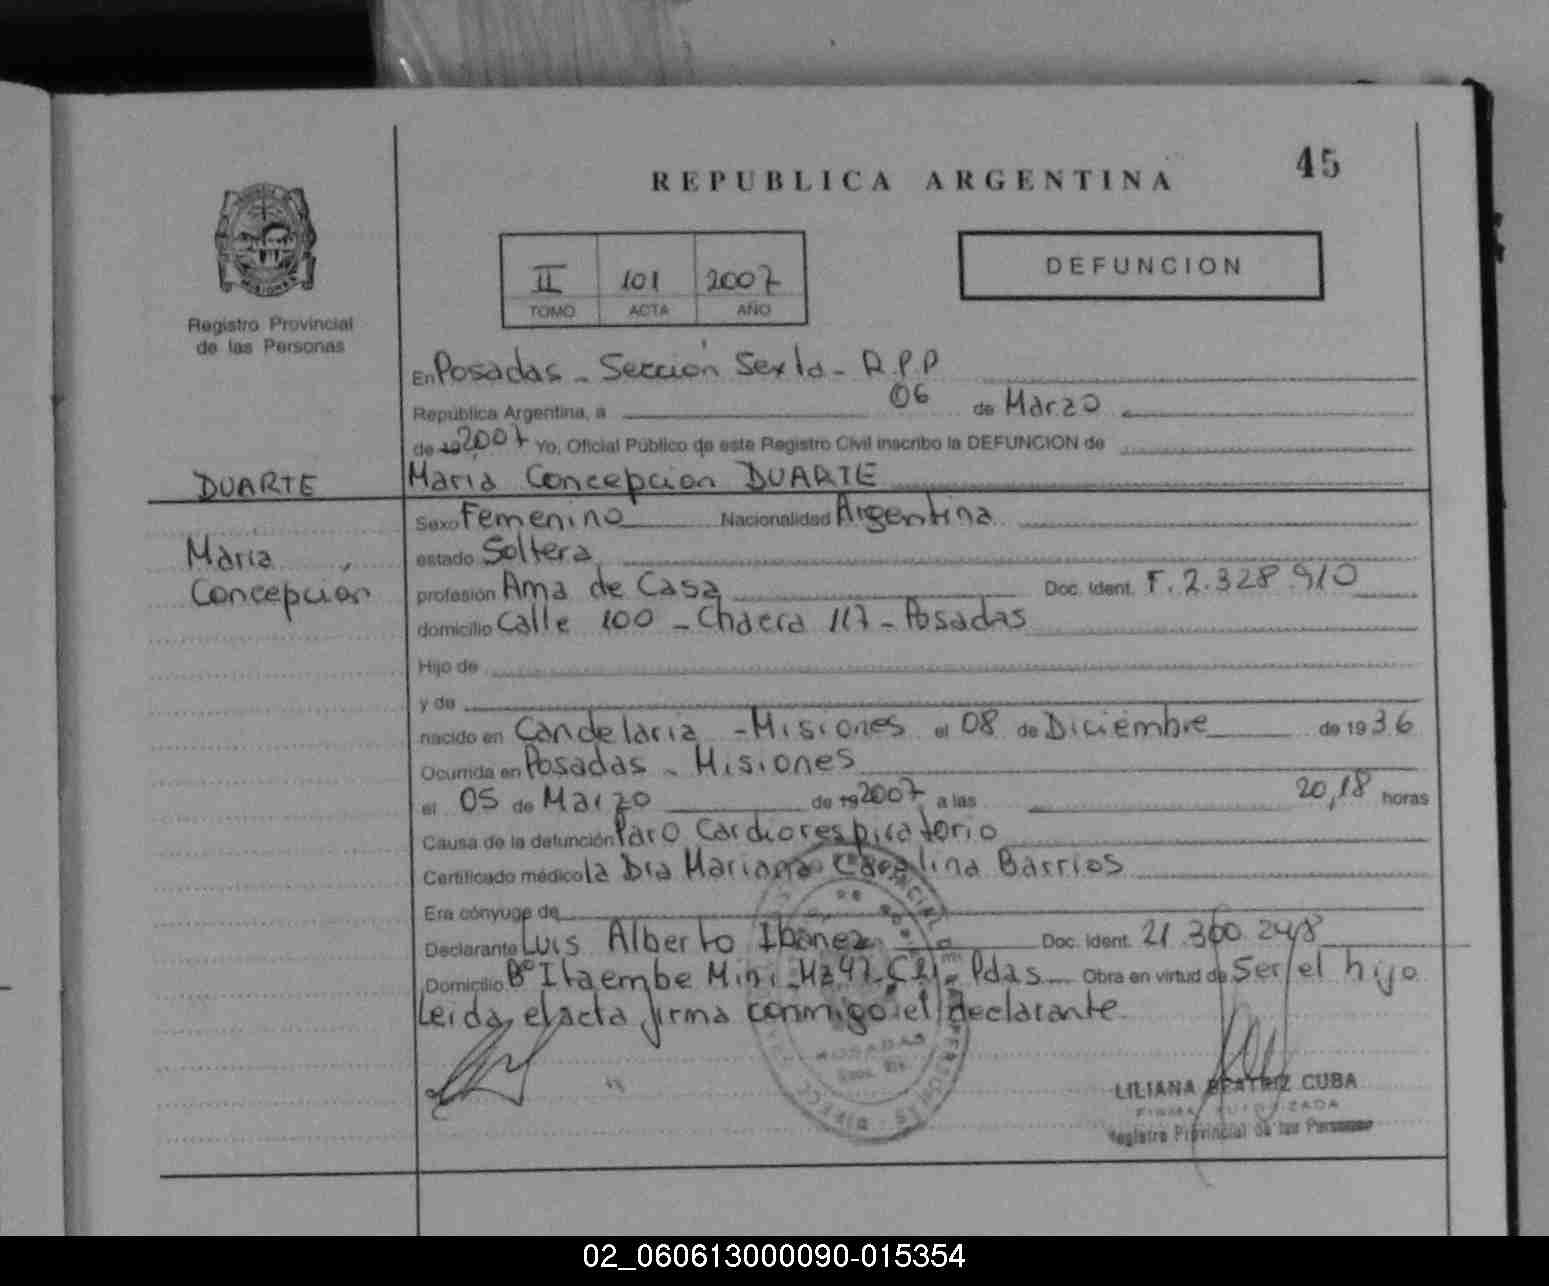 45
REPUBLICA ARGENTINA
MISIONES
Registro Provincial
de las Personas
II 101 2007
TOMO ACTA AÑO
DEFUNCION
En Posadas - Sección Sexta - R.P.P
República Argentina, a 06 de Marzo
de 19 2007 Yo, Oficial Público de este Registro Civil inscribo la DEFUNCION de
DUARTE
Maria Concepcion DUARTE
Maria
Concepcion
Sexo Femenino Nacionalidad Argentina
estado Soltera
profesión Ama de Casa Doc. Ident. F. 2.328.910
domicilio Calle 100 - Chacra 117 - Posadas
Hijo de
y de
nacido en Candelaria - Misiones el 08 de Diciembre de 1936
Ocurrida en Posadas - Misiones
el 05 de Marzo de 19 2007 a las 20,18 horas
Causa de la defunción Paro Cardiorespiratorio
Certificado médico la Dra Mariana Carolina Barrios
Era cónyuge de
Declarante Luis Alberto Ibañez Doc. Ident. 21.360.248
Domicilio B° Itaembe Mini - Mz 47 - Pdas Obra en virtud de Ser el hijo
Leida el acta firma conmigo el declarante
POSADAS
LILIANA BEATRIZ CUBA
FIRMA AUTORIZADA
Registro Provincial de las Personas
02_060613000090-015354